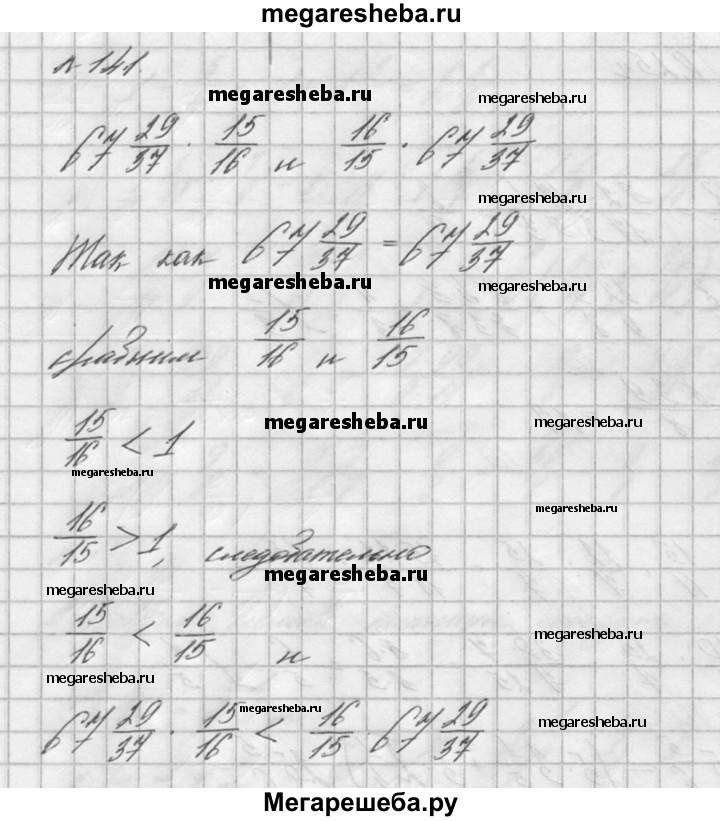 megaresheba.ru
№ 141.
megaresheba.ru megaresheba.ru
67 29/37 · 15/16 и 16/15 · 67 29/37
megaresheba.ru
Так как 67 29/37 = 67 29/37
megaresheba.ru megaresheba.ru
сравним 15/16 и 16/15
megaresheba.ru megaresheba.ru
15/16 < 1
megaresheba.ru
megaresheba.ru
16/15 > 1, следовательно
megaresheba.ru
megaresheba.ru
15/16 < 16/15 и
megaresheba.ru
megaresheba.ru
megaresheba.ru
67 29/37 · 15/16 < 16/15 · 67 29/37
megaresheba.ru
Мегарешеба.ру